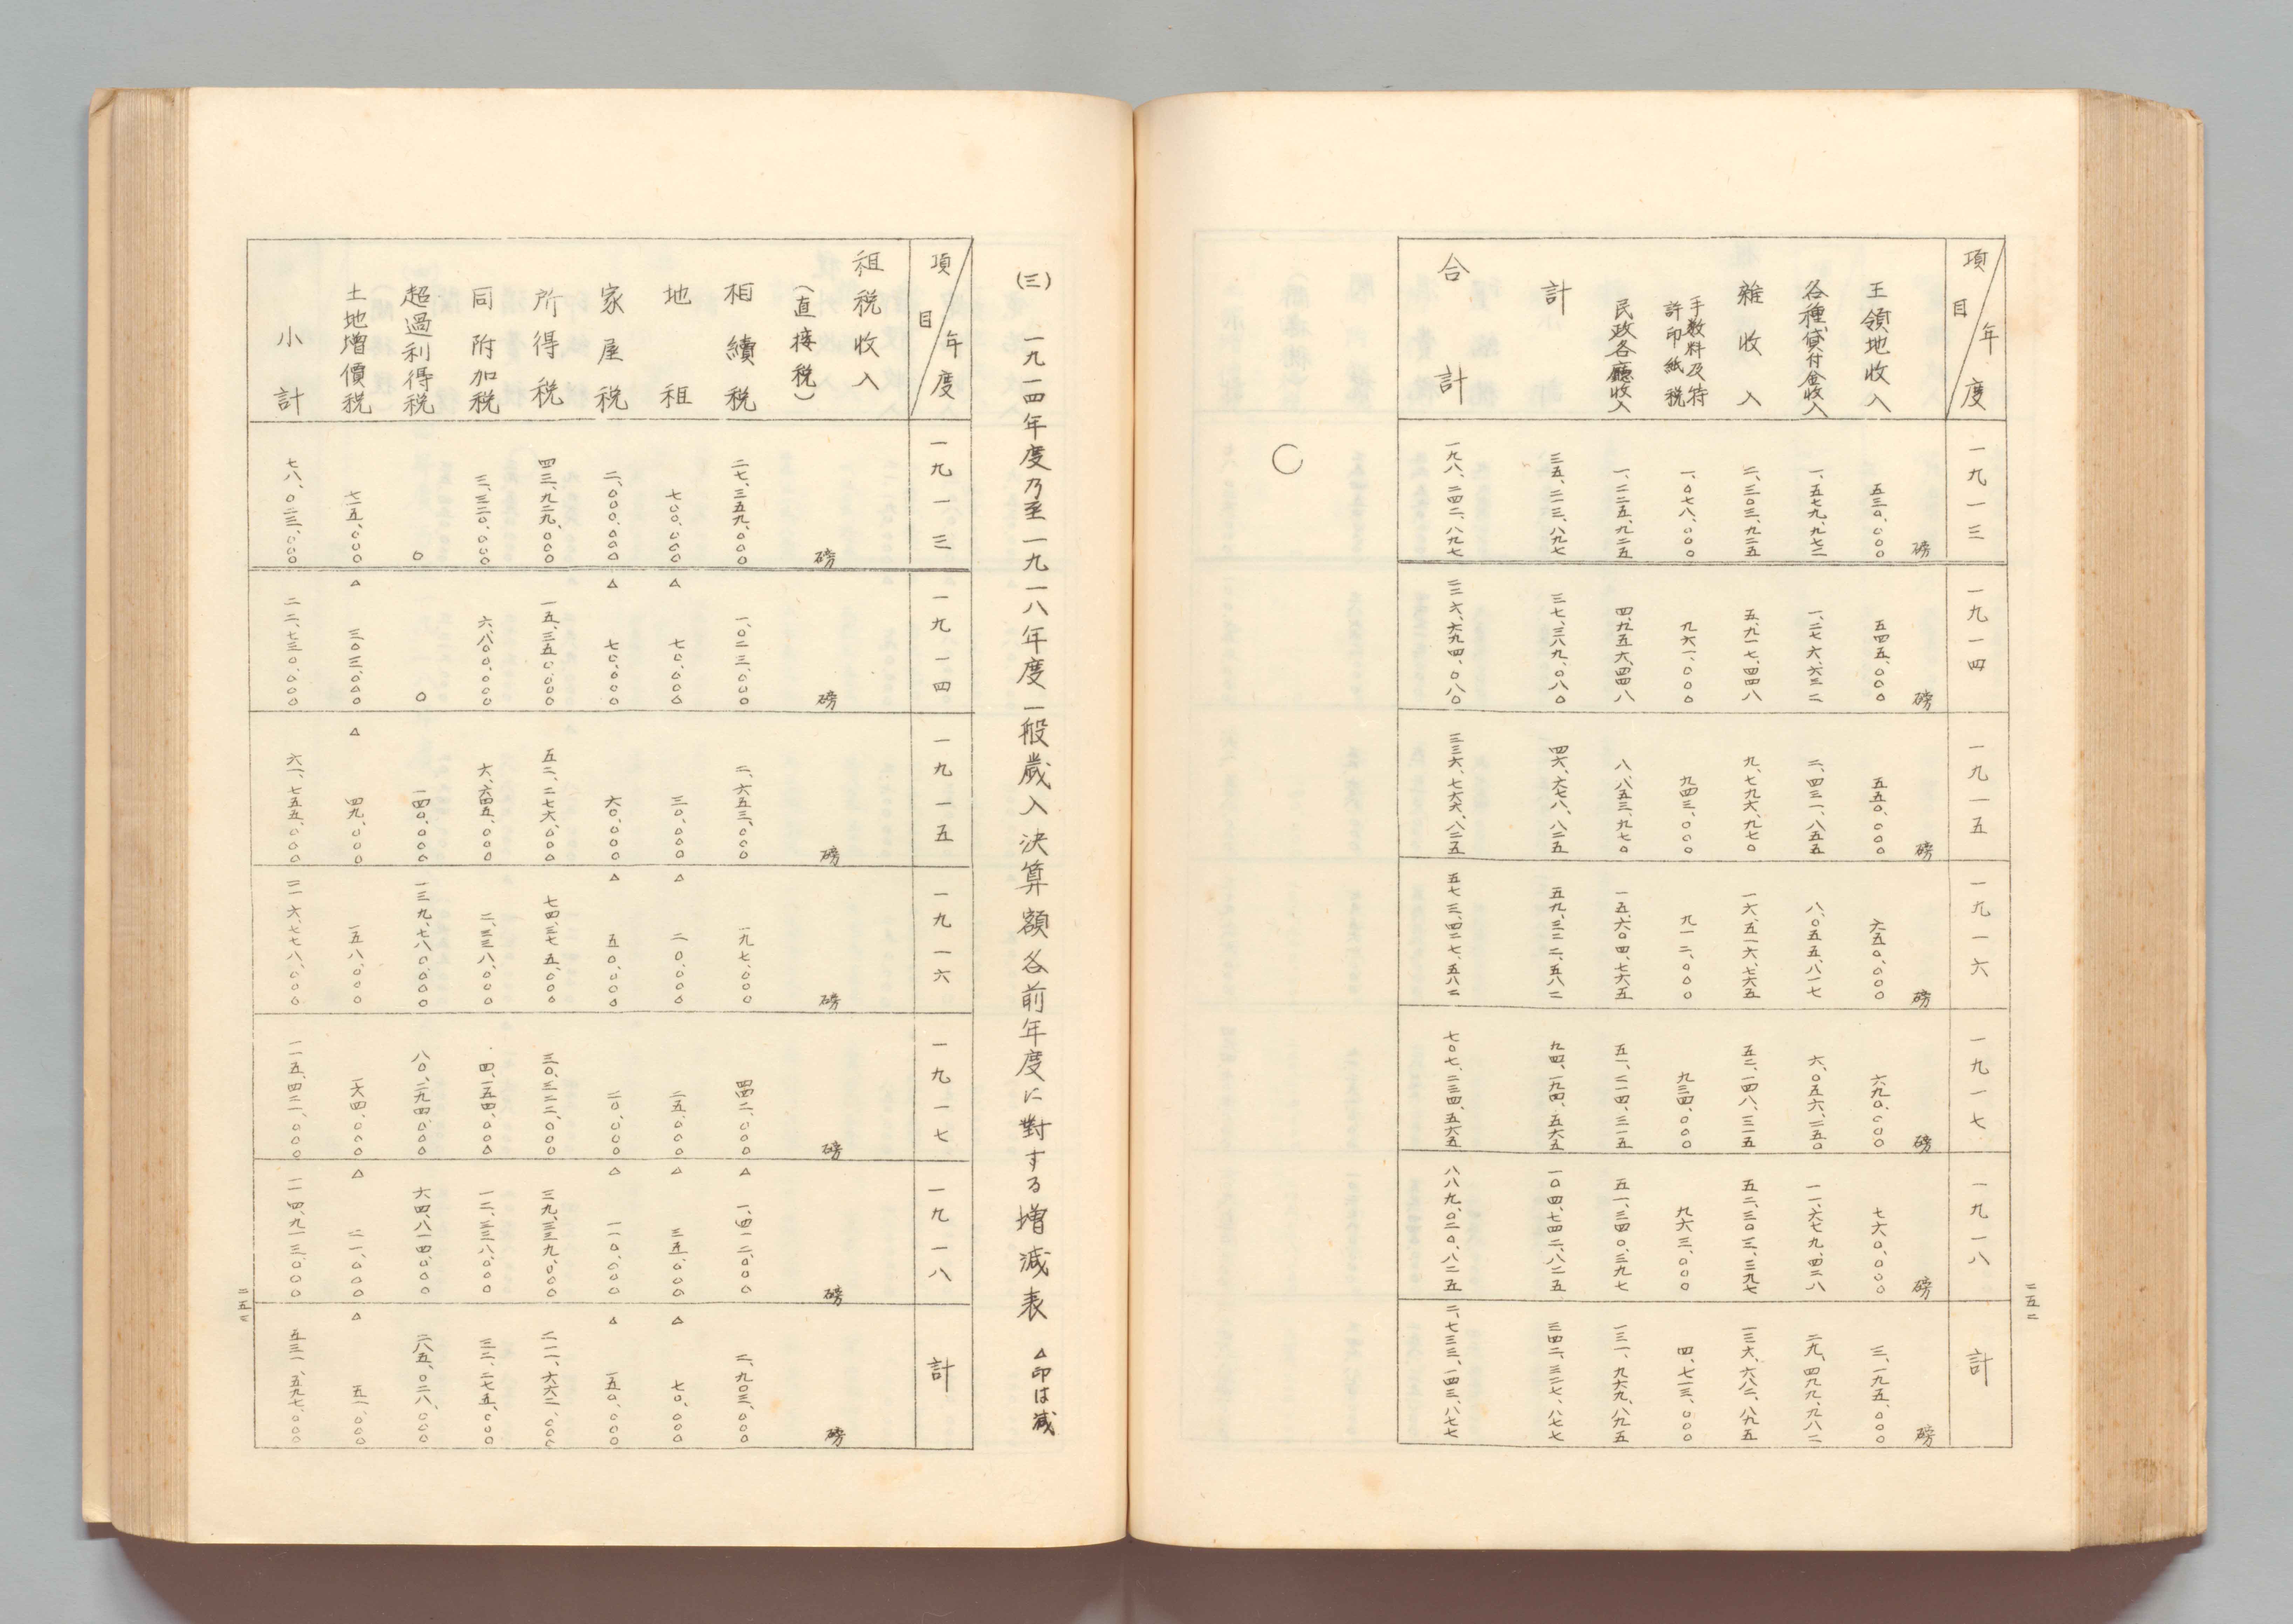 項目 年度 一九一三 一九一四 一九一五 一九一六 一九一七 一九一八 計
磅 磅 磅 磅 磅 磅 磅
王領地收入 五三〇、〇〇〇 五四五、〇〇〇 五五〇、〇〇〇 六五〇、〇〇〇 六九〇、〇〇〇 七六〇、〇〇〇 三、一九五、〇〇〇
各種貸付金收入 一、五七九、九七二 一、二七六、六三二 二、四三一、八五五 八、〇五五、八一七 六、〇五六、二五〇 一一、六七九、四二八 二九、四九九、九八二
雜收入 二、三〇三、九二五 五、九一七、四四八 九、七九六、九七〇 一六、五一六、七六五 五二、一四八、三一五 五二、三〇三、三九七 一三六、六八二、八九五
手数料及特許印紙税 一、〇七八、〇〇〇 九六一、〇〇〇 九四三、〇〇〇 九一二、〇〇〇 九三四、〇〇〇 九六三、〇〇〇 四、七一三、〇〇〇
民政各廳收入 一、二二五、九二五 四、九五六、四四八 八、八五三、九七〇 一五、六〇四、七六五 五一、二一四、三一五 五一、三四〇、三九七 一三一、九六九、八九五
計 三五、二一三、八九七 三七、三八九、〇八〇 四六、六七八、八二五 五九、三二二、五八二 九四、一九四、五六五 一〇四、七四二、八二五 三四二、三二七、八七七
合計 一九八、二四二、八九七 二二六、六九四、〇八〇 三三六、七六六、八二五 五七三、四二七、五八二 七〇七、二三四、五六五 八八九、〇二〇、八二五 二、七三三、一四三、八七七
二五二
(三) 一九一四年度乃至一九一八年度一般歲入決算額各前年度に對する増減表 △印は減
項目 年度 一九一三 一九一四 一九一五 一九一六 一九一七 一九一八 計
租税收入
(直接税) 磅 磅 磅 磅 磅 磅 磅
相續税 二七、三五九、〇〇〇 一、〇二三、〇〇〇 二、六五三、〇〇〇 一九七、〇〇〇 四四二、〇〇〇 △一、四一二、〇〇〇 二、九〇三、〇〇〇
地租 七〇〇、〇〇〇 △七〇、〇〇〇 三〇、〇〇〇 △二〇、〇〇〇 二五、〇〇〇 △三五、〇〇〇 △七〇、〇〇〇
家屋税 二、〇〇〇、〇〇〇 △七〇、〇〇〇 六〇、〇〇〇 △五〇、〇〇〇 二〇、〇〇〇 △一一〇、〇〇〇 △一五〇、〇〇〇
所得税 四三、九二九、〇〇〇 一五、三五〇、〇〇〇 五二、二七六、〇〇〇 七四、三七五、〇〇〇 三〇、三二二、〇〇〇 三九、三三九、〇〇〇 二一一、六六二、〇〇〇
同附加税 三、三二〇、〇〇〇 六、八〇〇、〇〇〇 六、六四五、〇〇〇 二、三三八、〇〇〇 四、一五四、〇〇〇 一二、三三八、〇〇〇 三二、二七五、〇〇〇
超過利得税 〇 〇 一四〇、〇〇〇 一三九、七八〇、〇〇〇 八〇、二九四、〇〇〇 六四、八一四、〇〇〇 二八五、〇二八、〇〇〇
土地增價税 七一五、〇〇〇 △三〇三、〇〇〇 △四九、〇〇〇 一五八、〇〇〇 一六四、〇〇〇 △二一、〇〇〇 △五一、〇〇〇
小計 七八、〇二三、〇〇〇 二二、七三〇、〇〇〇 六一、七五五、〇〇〇 二一六、七七八、〇〇〇 一一五、四二一、〇〇〇 一一四、九一三、〇〇〇 五三一、五九七、〇〇〇
二五三